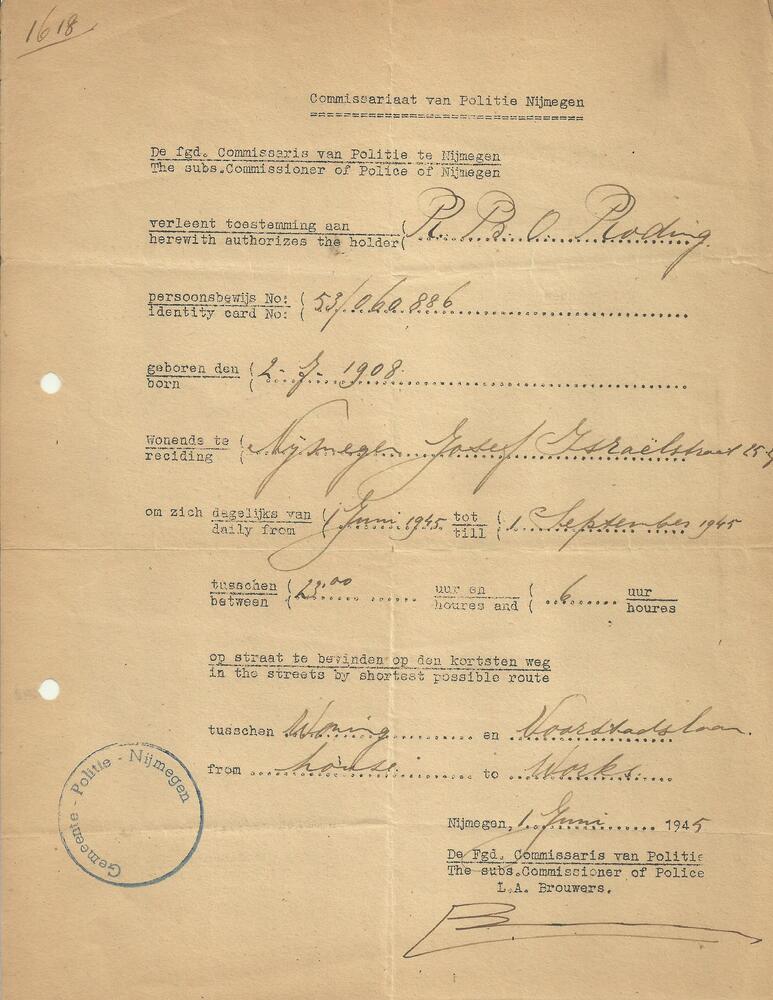 1618
Commissariaat van Politie Nijmegen
De fgd. Commissaris van Politie te Nijmegen
The subs.Commissioner of Police of Nijmegen
verleent toestemming aan ( R. B. O. Roding
herewith authorizes the holder(
persoonsbewijs No: ( 53/060886
identity card No: (
geboren den ( 2-7-1908
born (
Wonende te ( Nijmegen Josef Israëlstraat
reciding (
om zich dagelijks van ( 1 Juni 1945 tot ( 1. September 1945
daily from ( till (
tusschen ( 23.00 uur en ( 6 uur
between ( houres and ( houres
op straat te bevinden op den kortsten weg
in the streets by shortest possible route
tusschen Woning en Voorstadslaan.
from house to Works.
Nijmegen, 1 Juni 1945
De Fgd. Commissaris van Politie
The subs.Commissioner of Police
L.A. Brouwers.
Gemeente - Politie - Nijmegen